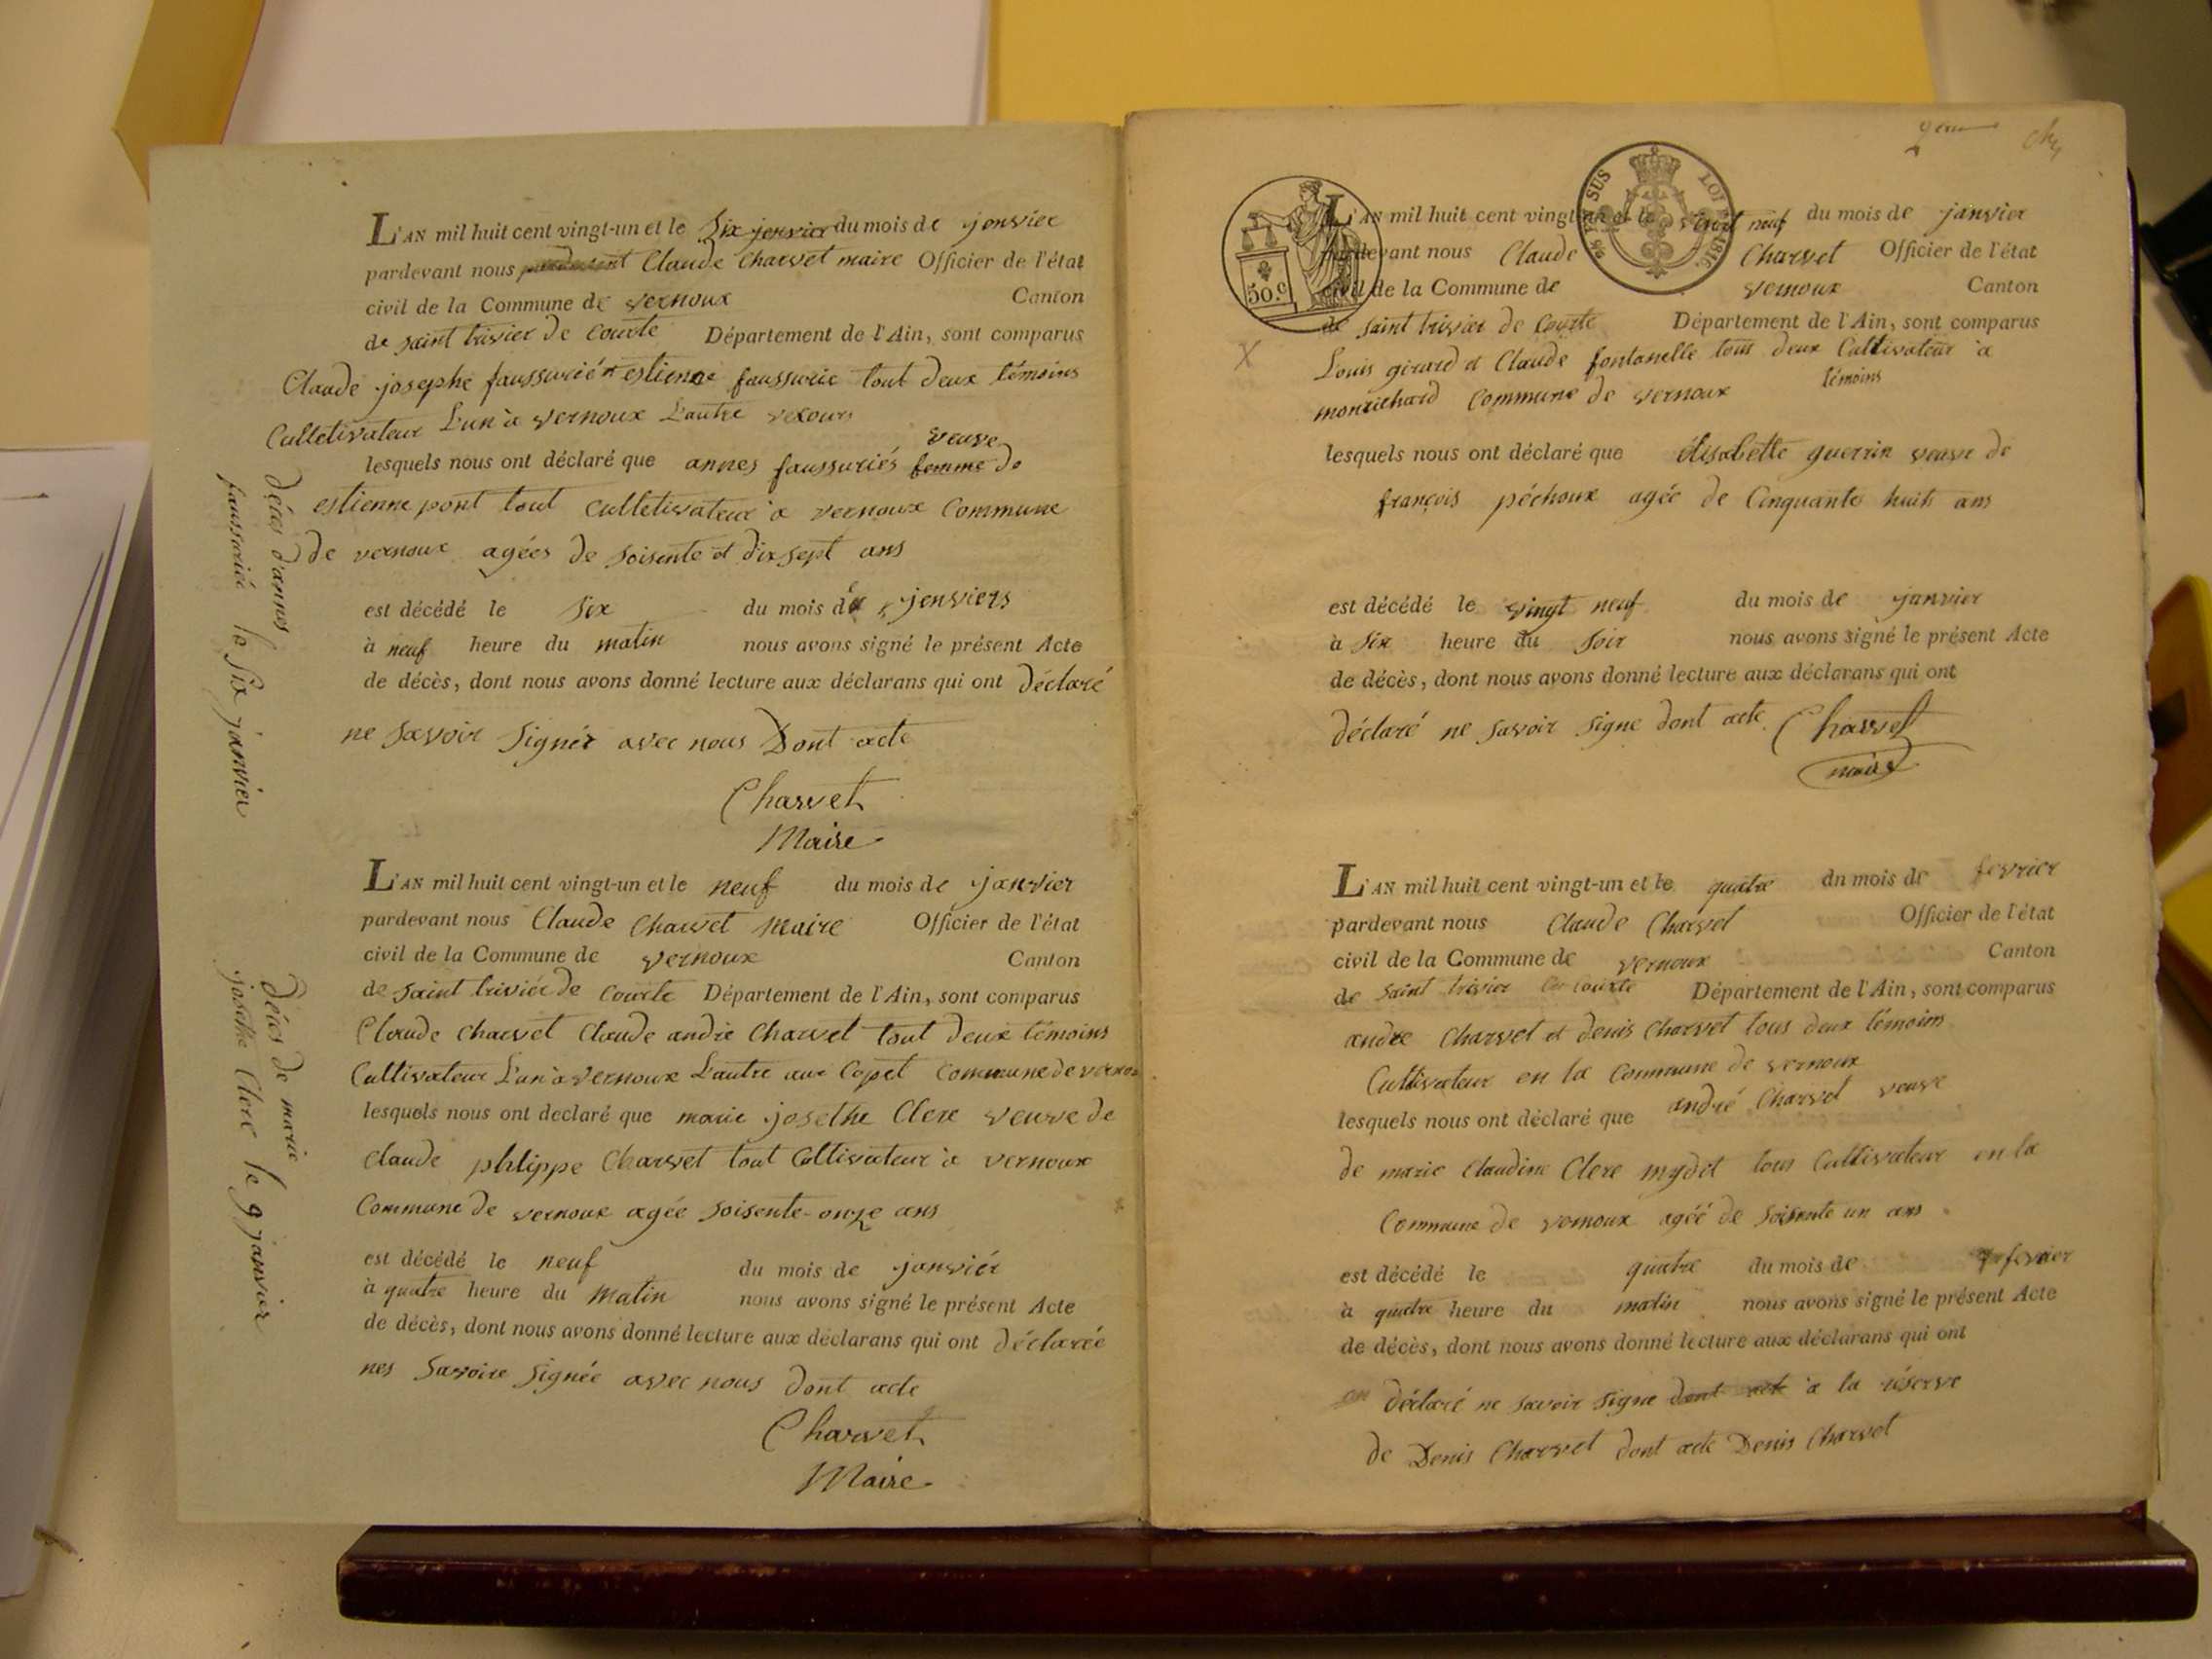 L'AN mil huit cent vingt-un et le six jenvier du mois de jenvier
pardevant nous Claude Charvet maire Officier de l'état
civil de la Commune de vernoux Canton
de saint trivier de Courte Département de l'Ain, sont comparus
Claude josephe faussurié et estienne faussurie tout deux témoins
Culletivateur L'un à vernoux L'autre
veuve
lesquels nous ont déclaré que annes faussuriés femme de
estienne pont tout Culletivateur à vernoux Commune
de vernoux agées de soisente et dix sept ans
est décédé le six du mois de jenviers
à neuf heure du matin nous avons signé le présent Acte
de décès, dont nous avons donné lecture aux déclarans qui ont déclaré
ne savoir signér avec nous Dont acte
Charvet
Maire
décés d'annes
faussurié le six janvier
L'AN mil huit cent vingt-un et le neuf du mois de janvier
pardevant nous Claude Charvet Maire Officier de l'état
civil de la Commune de vernoux Canton
de saint triviér de Courte Département de l'Ain, sont comparus
Claude Charvet Claude andré Charvet tout deux témoins
Cultivateur L'un à vernoux L'autre aux Capet Commune de vernoux
lesquels nous ont declaré que marie josethe Clere veuve de
Claude philippe Charvet tout Cultivateur à vernoux
Commune de vernoux agée soisente-onze ans
est décédé le neuf du mois de janviér
à quatre heure du Matin nous avons signé le présent Acte
de décès, dont nous avons donné lecture aux déclarans qui ont déclarée
nes Savoire signée avec nous dont acte
Charvet
Maire
décés de marie
josethe Clere le 9 janvier
50.c
EN SUS
LOI DE 1816.
L'AN mil huit cent vingt-un et le vingt neuf du mois de janvier
pardevant nous Claude Charvet Officier de l'état
civil de la Commune de vernoux Canton
de saint trivier de Courte Département de l'Ain, sont comparus
X
Louis girard et Claude fontanelle tous deux Cultivateur à
témoins
montrichard Commune de vernoux
lesquels nous ont déclaré que élisabette guerrin veuve de
françois péchoux agée de Cinquante huit ans
est décédé le vingt neuf du mois de janvier
à six heure du soir nous avons signé le présent Acte
de décès, dont nous avons donné lecture aux déclarans qui ont
déclaré ne savoir signe dont acte Charvet
maire
L'AN mil huit cent vingt-un et le quatre dn mois de fevrier
pardevant nous Claude Charvet Officier de l'état
civil de la Commune de vernoux Canton
de saint trivier de Courte Département de l'Ain, sont comparus
andre Charvet et denis Charvet tous deux témoins
Cultivateur en la Commune de vernoux
lesquels nous ont déclaré que andré Charvet veuve
de marie Claudine Clere mydet tous Cultivateur en la
Commune de vernoux agéé de soisente un ans
est décédé le quatre du mois de fevrier
à quatre heure du matin nous avons signé le présent Acte
de décès, dont nous avons donné lecture aux déclarans qui ont
on déclaré ne savoir signe dont acte à la réserve
de Denis Charvet dont acte Denis Charvet